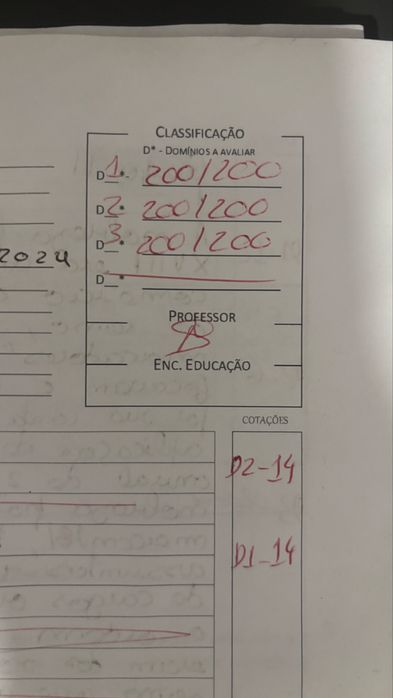 CLASSIFICAÇÃO
D* - DOMÍNIOS A AVALIAR
D1*- 200/200
D2* 200/200
D3* 200/200
D_*
2024
PROFESSOR
ENC. EDUCAÇÃO
COTAÇÕES
D2-14
D1-14